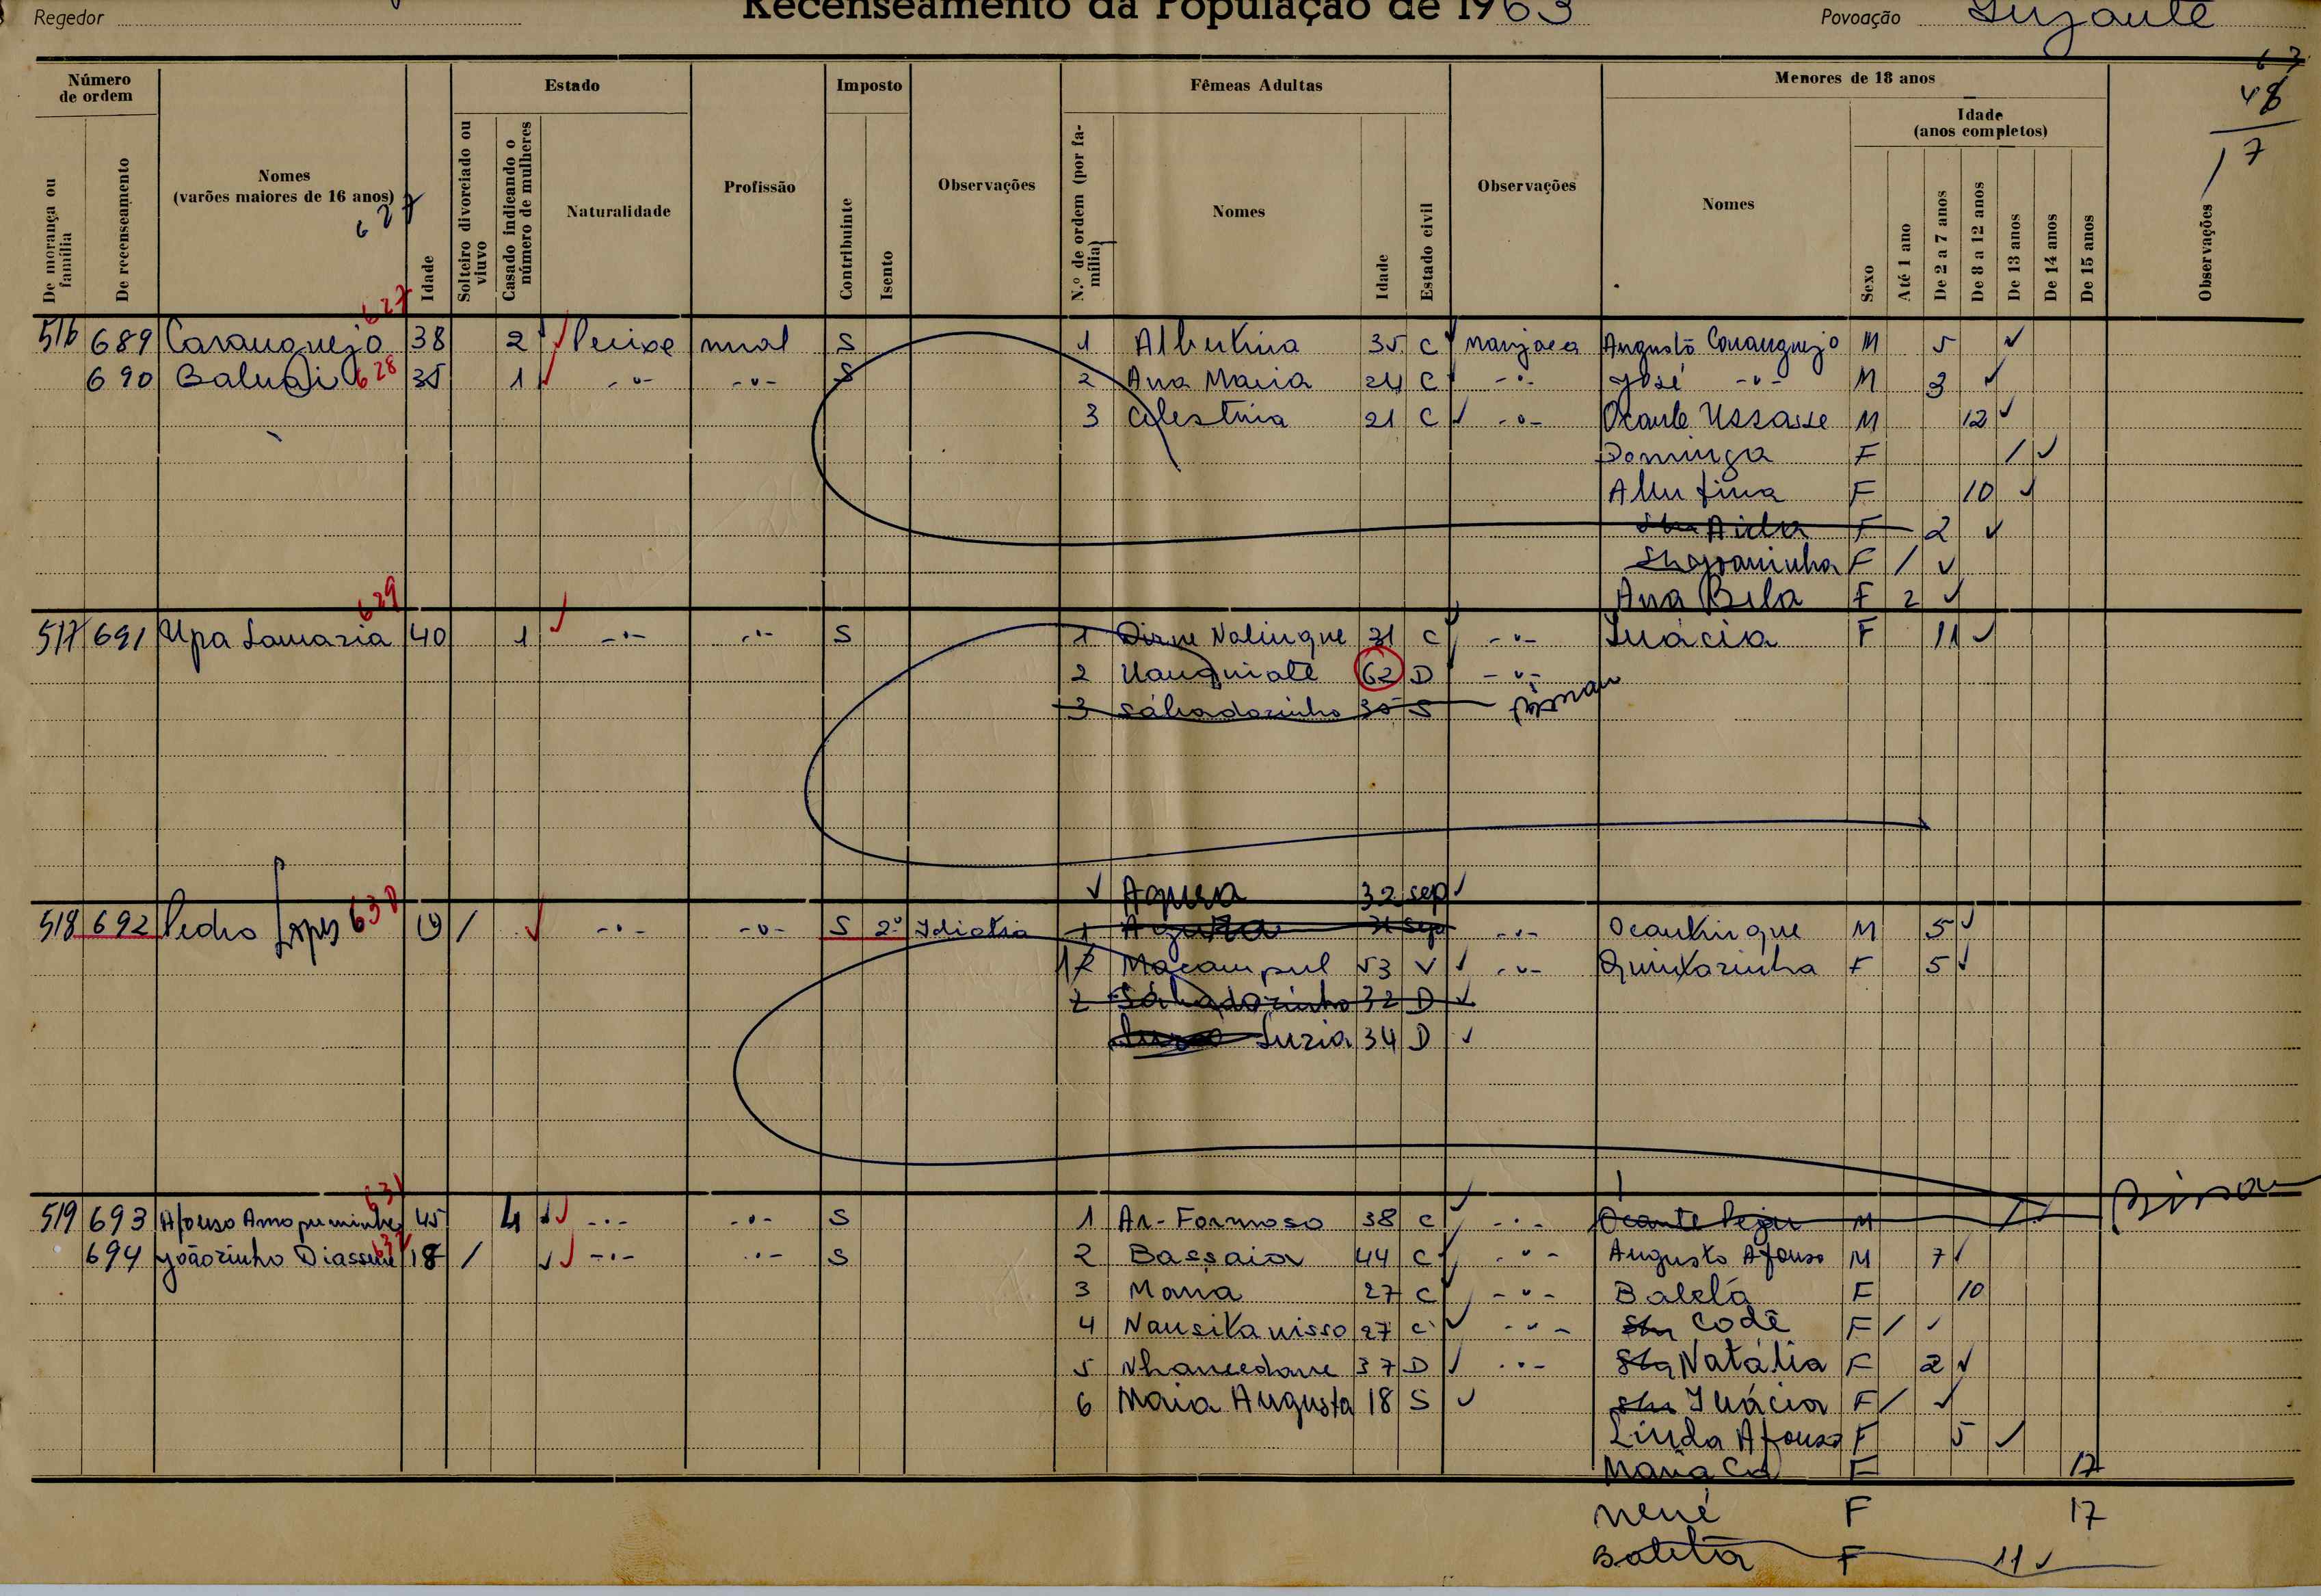 Regedor Recenseamento da População de 1963 Povoação
Número de ordem
De morança ou família
De recenseamento
Nomes
(varões maiores de 16 anos)
627
Idade
Estado
Solteiro divorciado ou viuvo
Casado indicando o número de mulheres
Naturalidade
Profissão
Imposto
Contribuinte
Isento
Observações
Fêmeas Adultas
N.º de ordem (por família)
Nomes
Idade
Estado civil
Observações
Menores de 18 anos
Nomes
Sexo
Idade
(anos completos)
Até 1 ano
De 2 a 7 anos
De 8 a 12 anos
De 13 anos
De 14 anos
De 15 anos
Observações
48
17
627
516 689 Caranguejo 38 2 Peixe rural S 1 Albertina 35 C manjaca Augusto Caranguejo M 5
690 628 35 1 -"- -"- S 2 Ana Maria 24 C -"- José -"- M 3
3 Celestina 21 C -"- Ocante Ussasse M 12
Dominga F /
Albertina F 10
Aida F 2
Joaninha F /
Ana Bela F 2
629
517 691 Upa Samaria 40 1 -"- -"- S 1 Nalingue 31 C -"- Inácia F 11
2 62 D -"-
3 Sábadozinho 30 S Bissau
Aquea 32 sep
518 692 Pedro Lopes 630 19 / -"- -"- S 2º Idiotia 1 sep -"- M 5
2 Macampul 53 V -"- Quintazinha F 5
2 Sábadozinho 32 D
Luzia 34 D
631
519 693 Afonso 45 4 -"- -"- S 1 Ar-Formoso 38 C -"- Ocante M Bissau
694 Joãozinho 632 18 / -"- -"- S 2 Bassaia 44 C -"- Augusto Afonso M 7
3 Maria 27 C -"- Balelá F 10
4 27 C -"- Codê F /
5 37 D -"- Natália F 2
6 Maria Augusta 18 S Inácia F /
Linda Afonso F 5
Maria F 17
Nené F 17
F 11